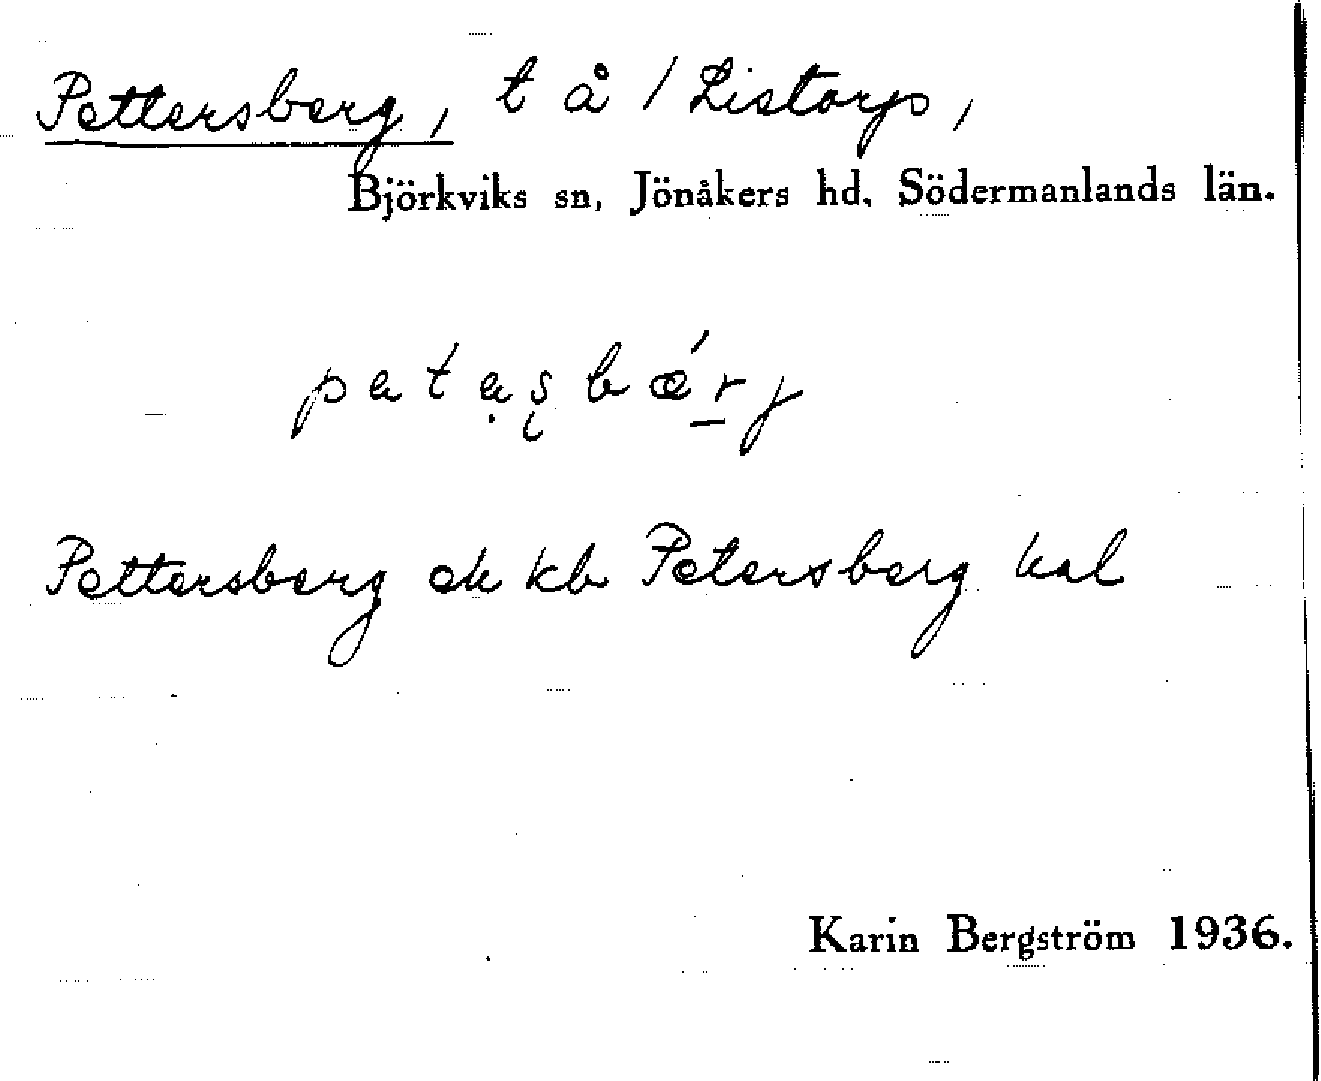 Pettersberg, t å / Listorp,
Björkviks sn, Jönåkers hd, Södermanlands län.
petẹʂbǽr̲j
Pettersberg ek kb Petersberg hal
Karin Bergström 1936.